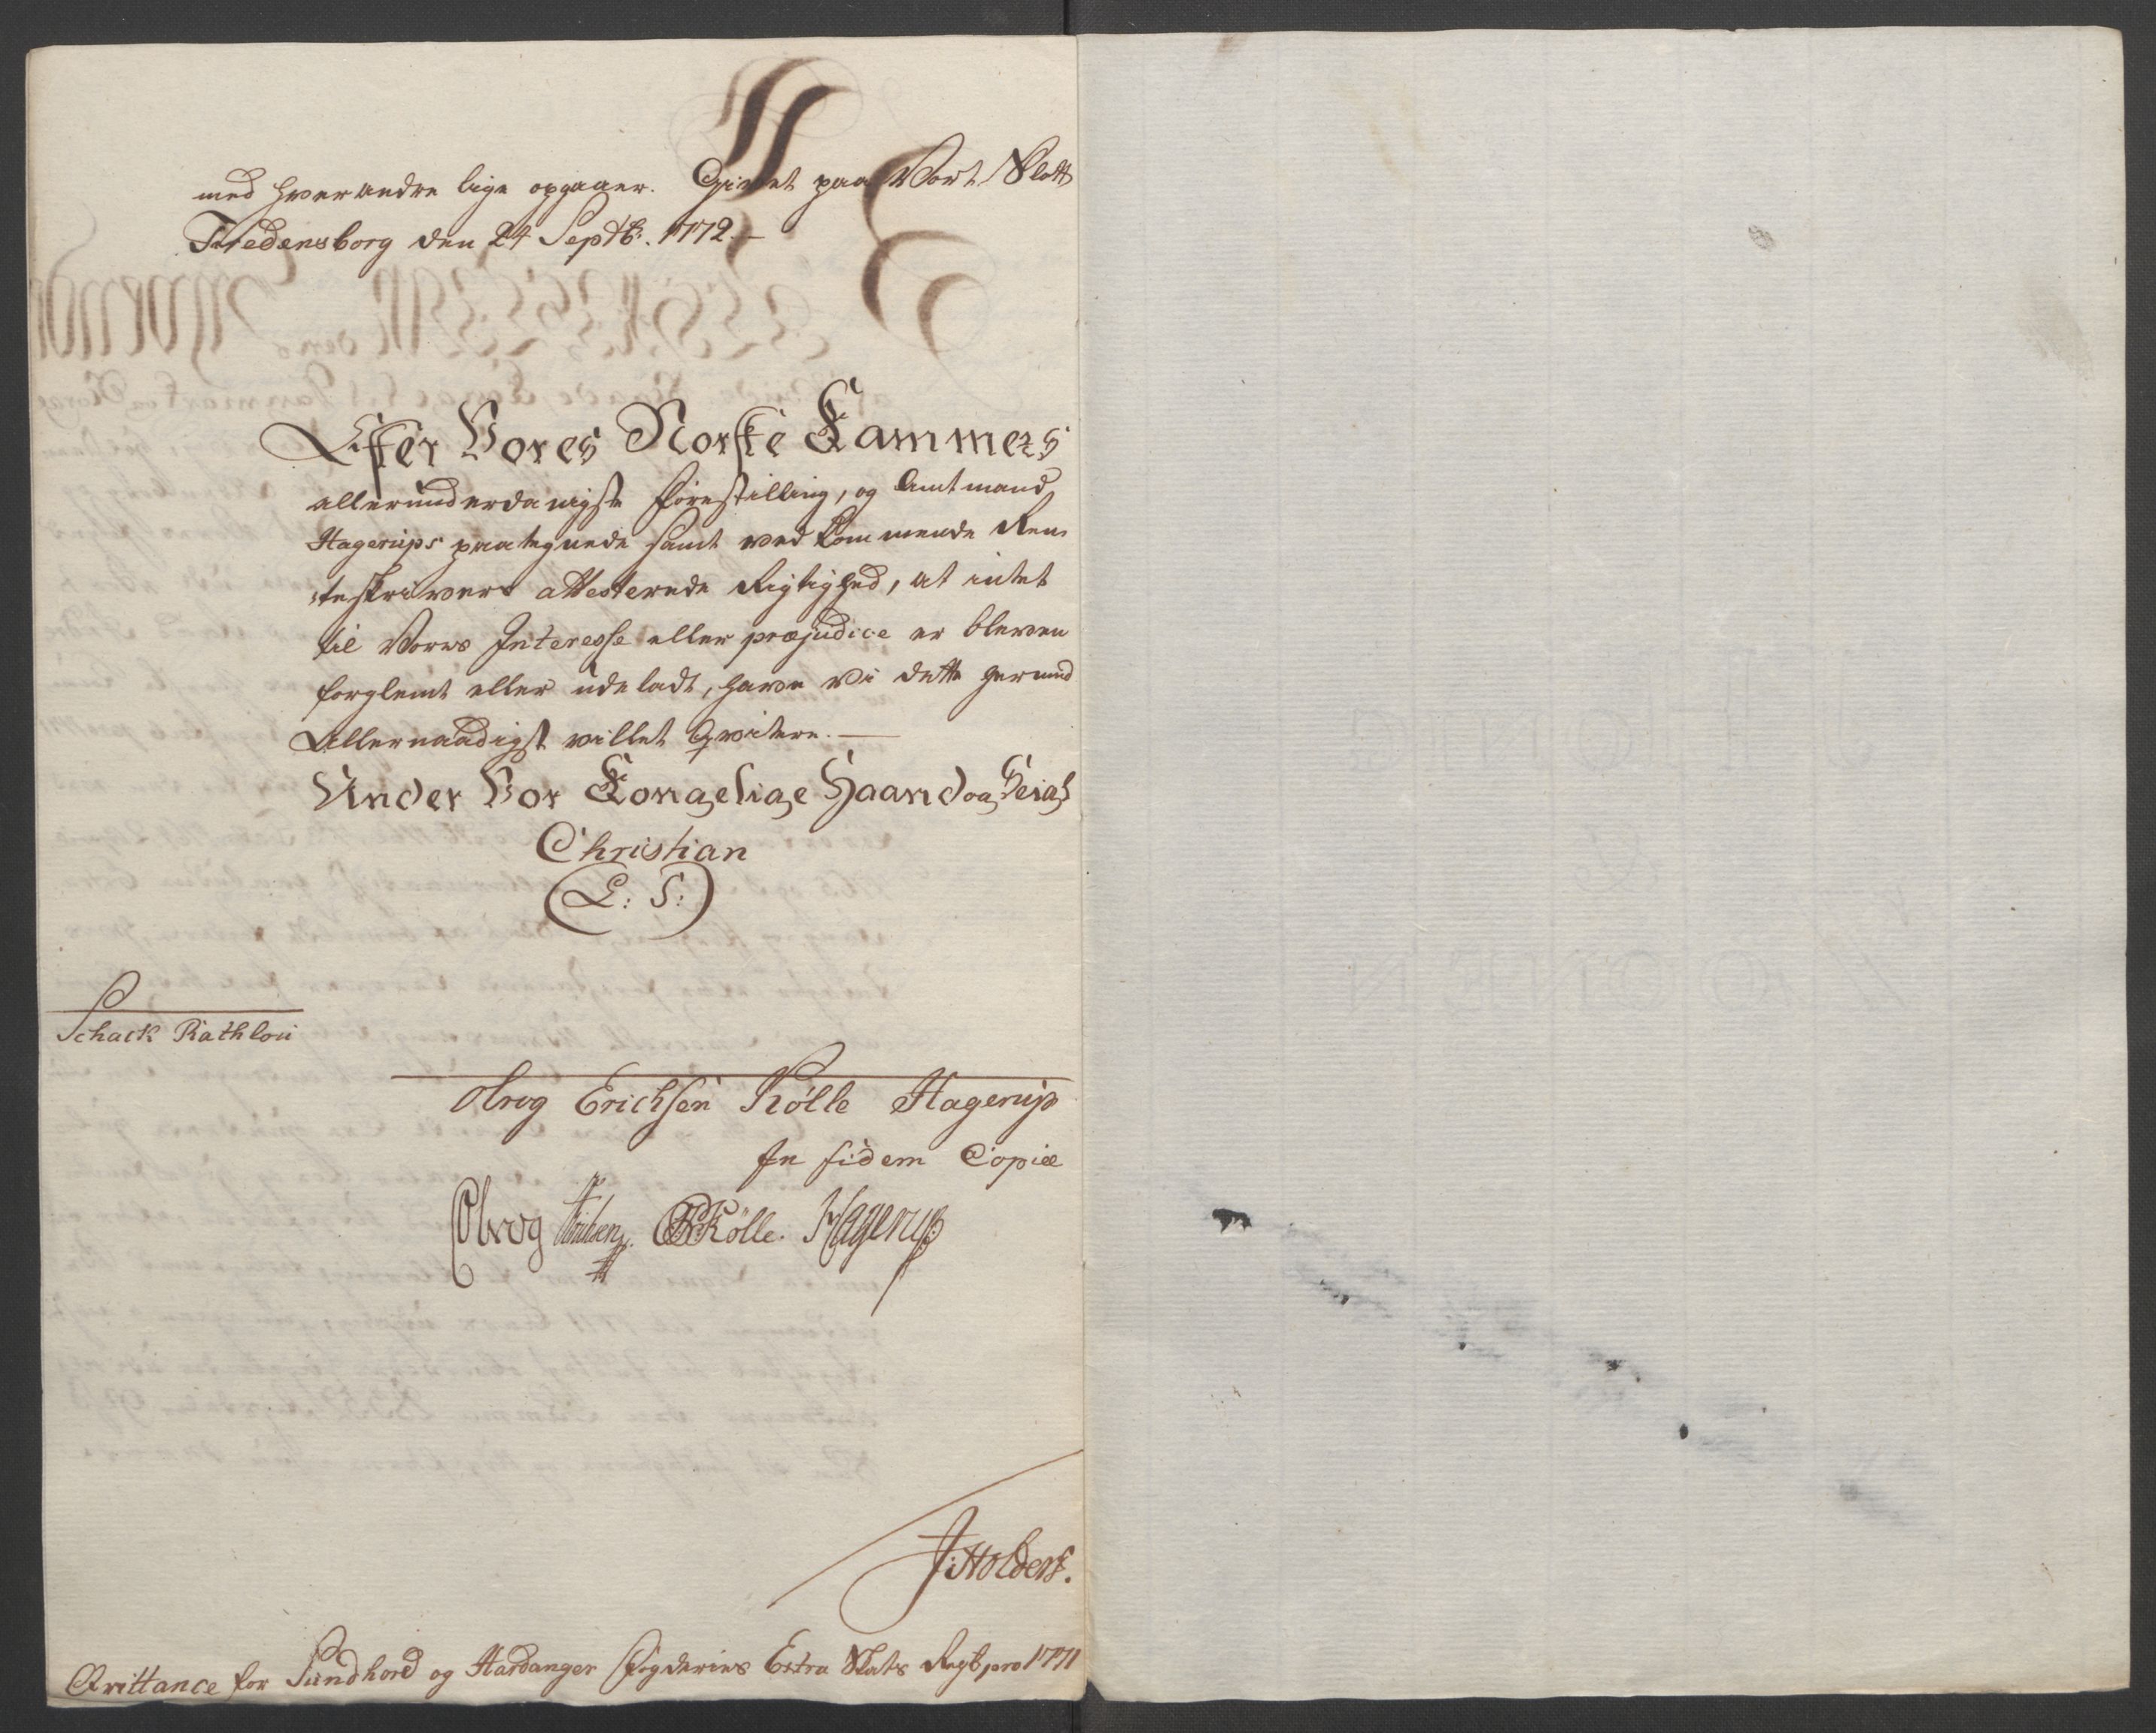 med hverandre lige opgaaer. Givet paa Vort Slott
Fredensborg den 24 Septbr. 1772.
Efter Vores Norske Kammers
allerunderdanigste Forestilling, og Amtmand
Hagerups paategnede samt vedkommende Ren-
teskrivers attesterede Rigtighed, at intet
til Vores Interesse eller præjudice er bleven
forglemt eller udeladt, have Vi dette hermed
Allernaadigst villet Qvitere. —
Under Vor Kongelige Haand og Seigl
Christian
(L: S:)
Schack Rathlou
Obrog Erichsen Kölle Hagerup
In fidem Copiæ
Obrog Erichsen. Kölle. Hagerup
J: Holders.
Qvittance for Sundhord og Hardanger Fogderies Extra Skats Regsb. pro 1771